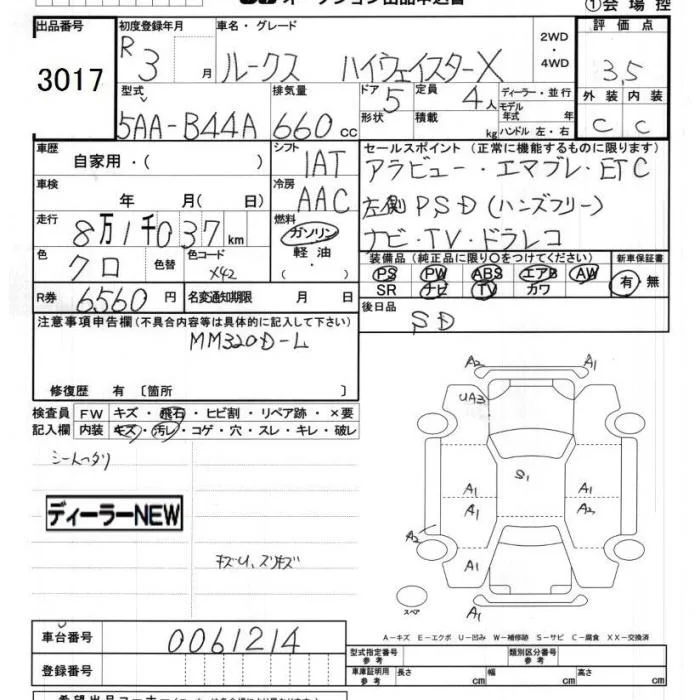 ①会場控
出品番号
3017
初度登録年月
R3月
車名・グレード
ルークス ハイウェイスターX
2WD・4WD
評価点
3.5
外装 内装
C C
型式
5AA-B44A
排気量
660cc
ドア 5
形状
定員 4人
積載 kg
ディーラー・並行
モデル年式 年
ハンドル 左・右
車歴
自家用・( )
シフト
IAT
車検
年 月( 日)
冷房
AAC
走行
8万1千037km
燃料
ガソリン
軽油
色
クロ
色替
色コード
X42
R券 6560円
名変通知期限 月 日
セールスポイント(正常に機能するものに限ります)
アラビュー・エマブレ・ETC
左側PSD(ハンズフリー)
ナビ・TV・ドラレコ
装備品(純正品に限り○をつけてください)
PS PW ABS エアB AW
SR ナビ TV カワ
新車保証書
有・無
後日品
SD
注意事項申告欄(不具合内容等は具体的に記入して下さい)
MM320D-L
修復歴 有〔箇所 〕
検査員記入欄
FW キズ・飛石・ヒビ割・リペア跡・×要
内装 キズ・汚レ・コゲ・穴・スレ・キレ・破レ
ディーラーNEW
キズU、スリキズ
A2
A1
UA3
S1
A1
A1
A1
A2
A2
A1
A1
A1
スペア
A-キズ E-エクボ U-凹み W-補修跡 S-サビ C-腐食 XX-交換済
車台番号
0061214
登録番号
型式指定番号 参考
類別区分番号 参考
車庫証明用 参考
長さ cm
幅 cm
高さ cm